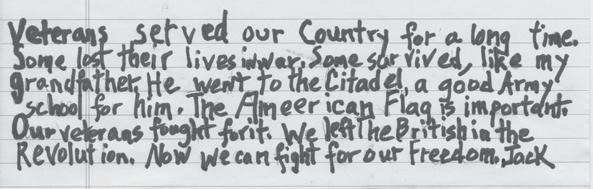 Veterans served our Country for a long time.
Some lost their lives in war. Some survived, like my
grandfather. He went to the Citadel, a good Army
school for him. The Ameerican Flag is important.
Our veterans fought for it. We left The British in the
Revolution. Now we can fight for our Freedom. Jack